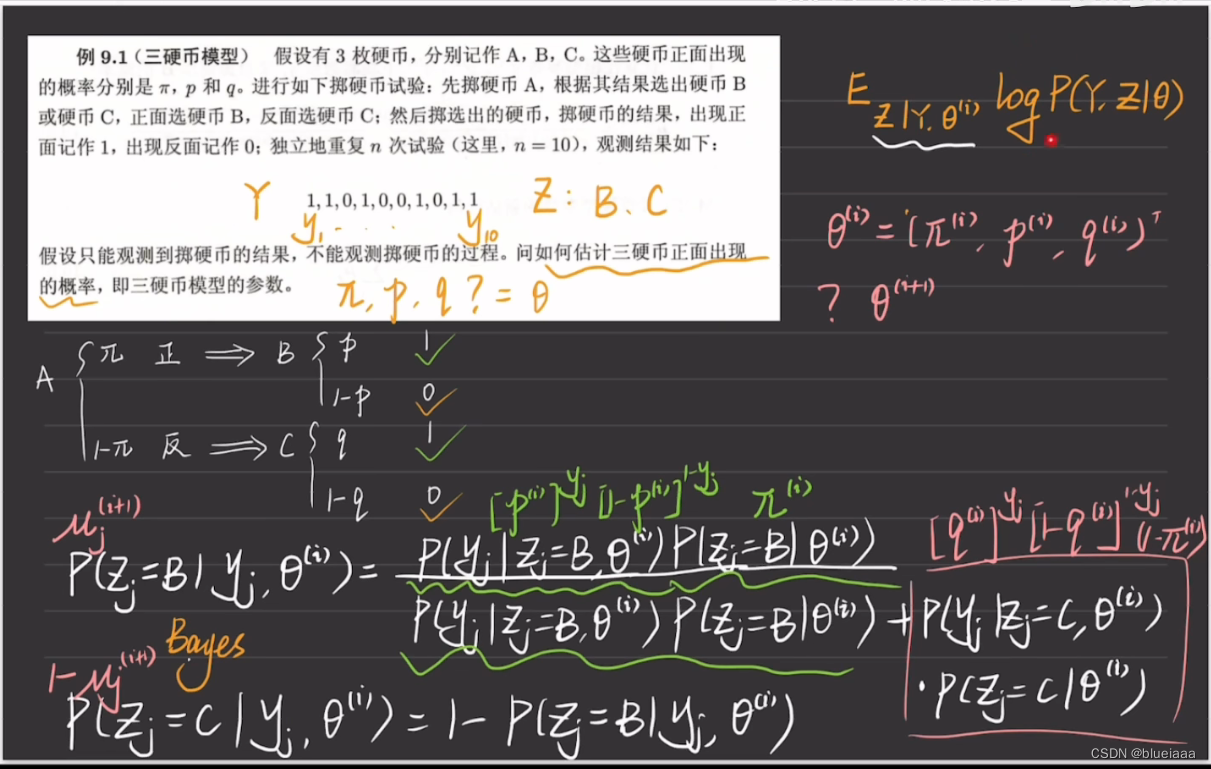 例 9.1（三硬币模型） 假设有 3 枚硬币，分别记作 A，B，C。这些硬币正面出现
的概率分别是 π，p 和 q。进行如下掷硬币试验：先掷硬币 A，根据其结果选出硬币 B
或硬币 C，正面选硬币 B，反面选硬币 C；然后掷选出的硬币，掷硬币的结果，出现正
面记作 1，出现反面记作 0；独立地重复 n 次试验（这里，n = 10），观测结果如下：
Y 1,1,0,1,0,0,1,0,1,1 Z：B、C
y₁ . . . y₁₀
假设只能观测到掷硬币的结果，不能观测掷硬币的过程。问如何估计三硬币正面出现
的概率，即三硬币模型的参数。
π, p, q ? = θ
E_{Z|Y,θ^(i)} log P(Y, Z|θ)
θ^(i) = (π^(i), p^(i), q^(i))^T
? θ^(i+1)
A { π 正 ⟹ B { p 1
1-p 0
1-π 反 ⟹ C { q 1
1-q 0
[p^(i)]^{y_j} [1-p^(i)]^{1-y_j} π^(i)
[q^(i)]^{y_j} [1-q^(i)]^{1-y_j} (1-π^(i))
μ_j^(i+1)
P(Z_j=B| y_j, θ^(i)) = P(y_j|Z_j=B, θ^(i)) P(Z_j=B|θ^(i))
P(y_j|Z_j=B, θ^(i)) P(Z_j=B|θ^(i)) + P(y_j|Z_j=C, θ^(i))
· P(Z_j=C|θ^(i))
Bayes
1-μ_j^(i+1)
P(Z_j=C| y_j, θ^(i)) = 1- P(Z_j=B|y_j, θ^(i))
CSDN @blueiaaa